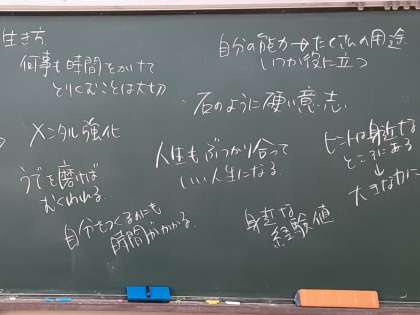 生き方
何事も時間をかけて
とりくむことは大切
自分の能力→たくさんの用途
いつか役に立つ
・石のように硬い意志
メンタル強化
人生もぶつかり合って
いい人生になる
ヒントは身近な
ところにある
↓
大きなかに
うでを磨けば
むくわれる
自分をつくるにも
時間がかかる
身近な
経験値